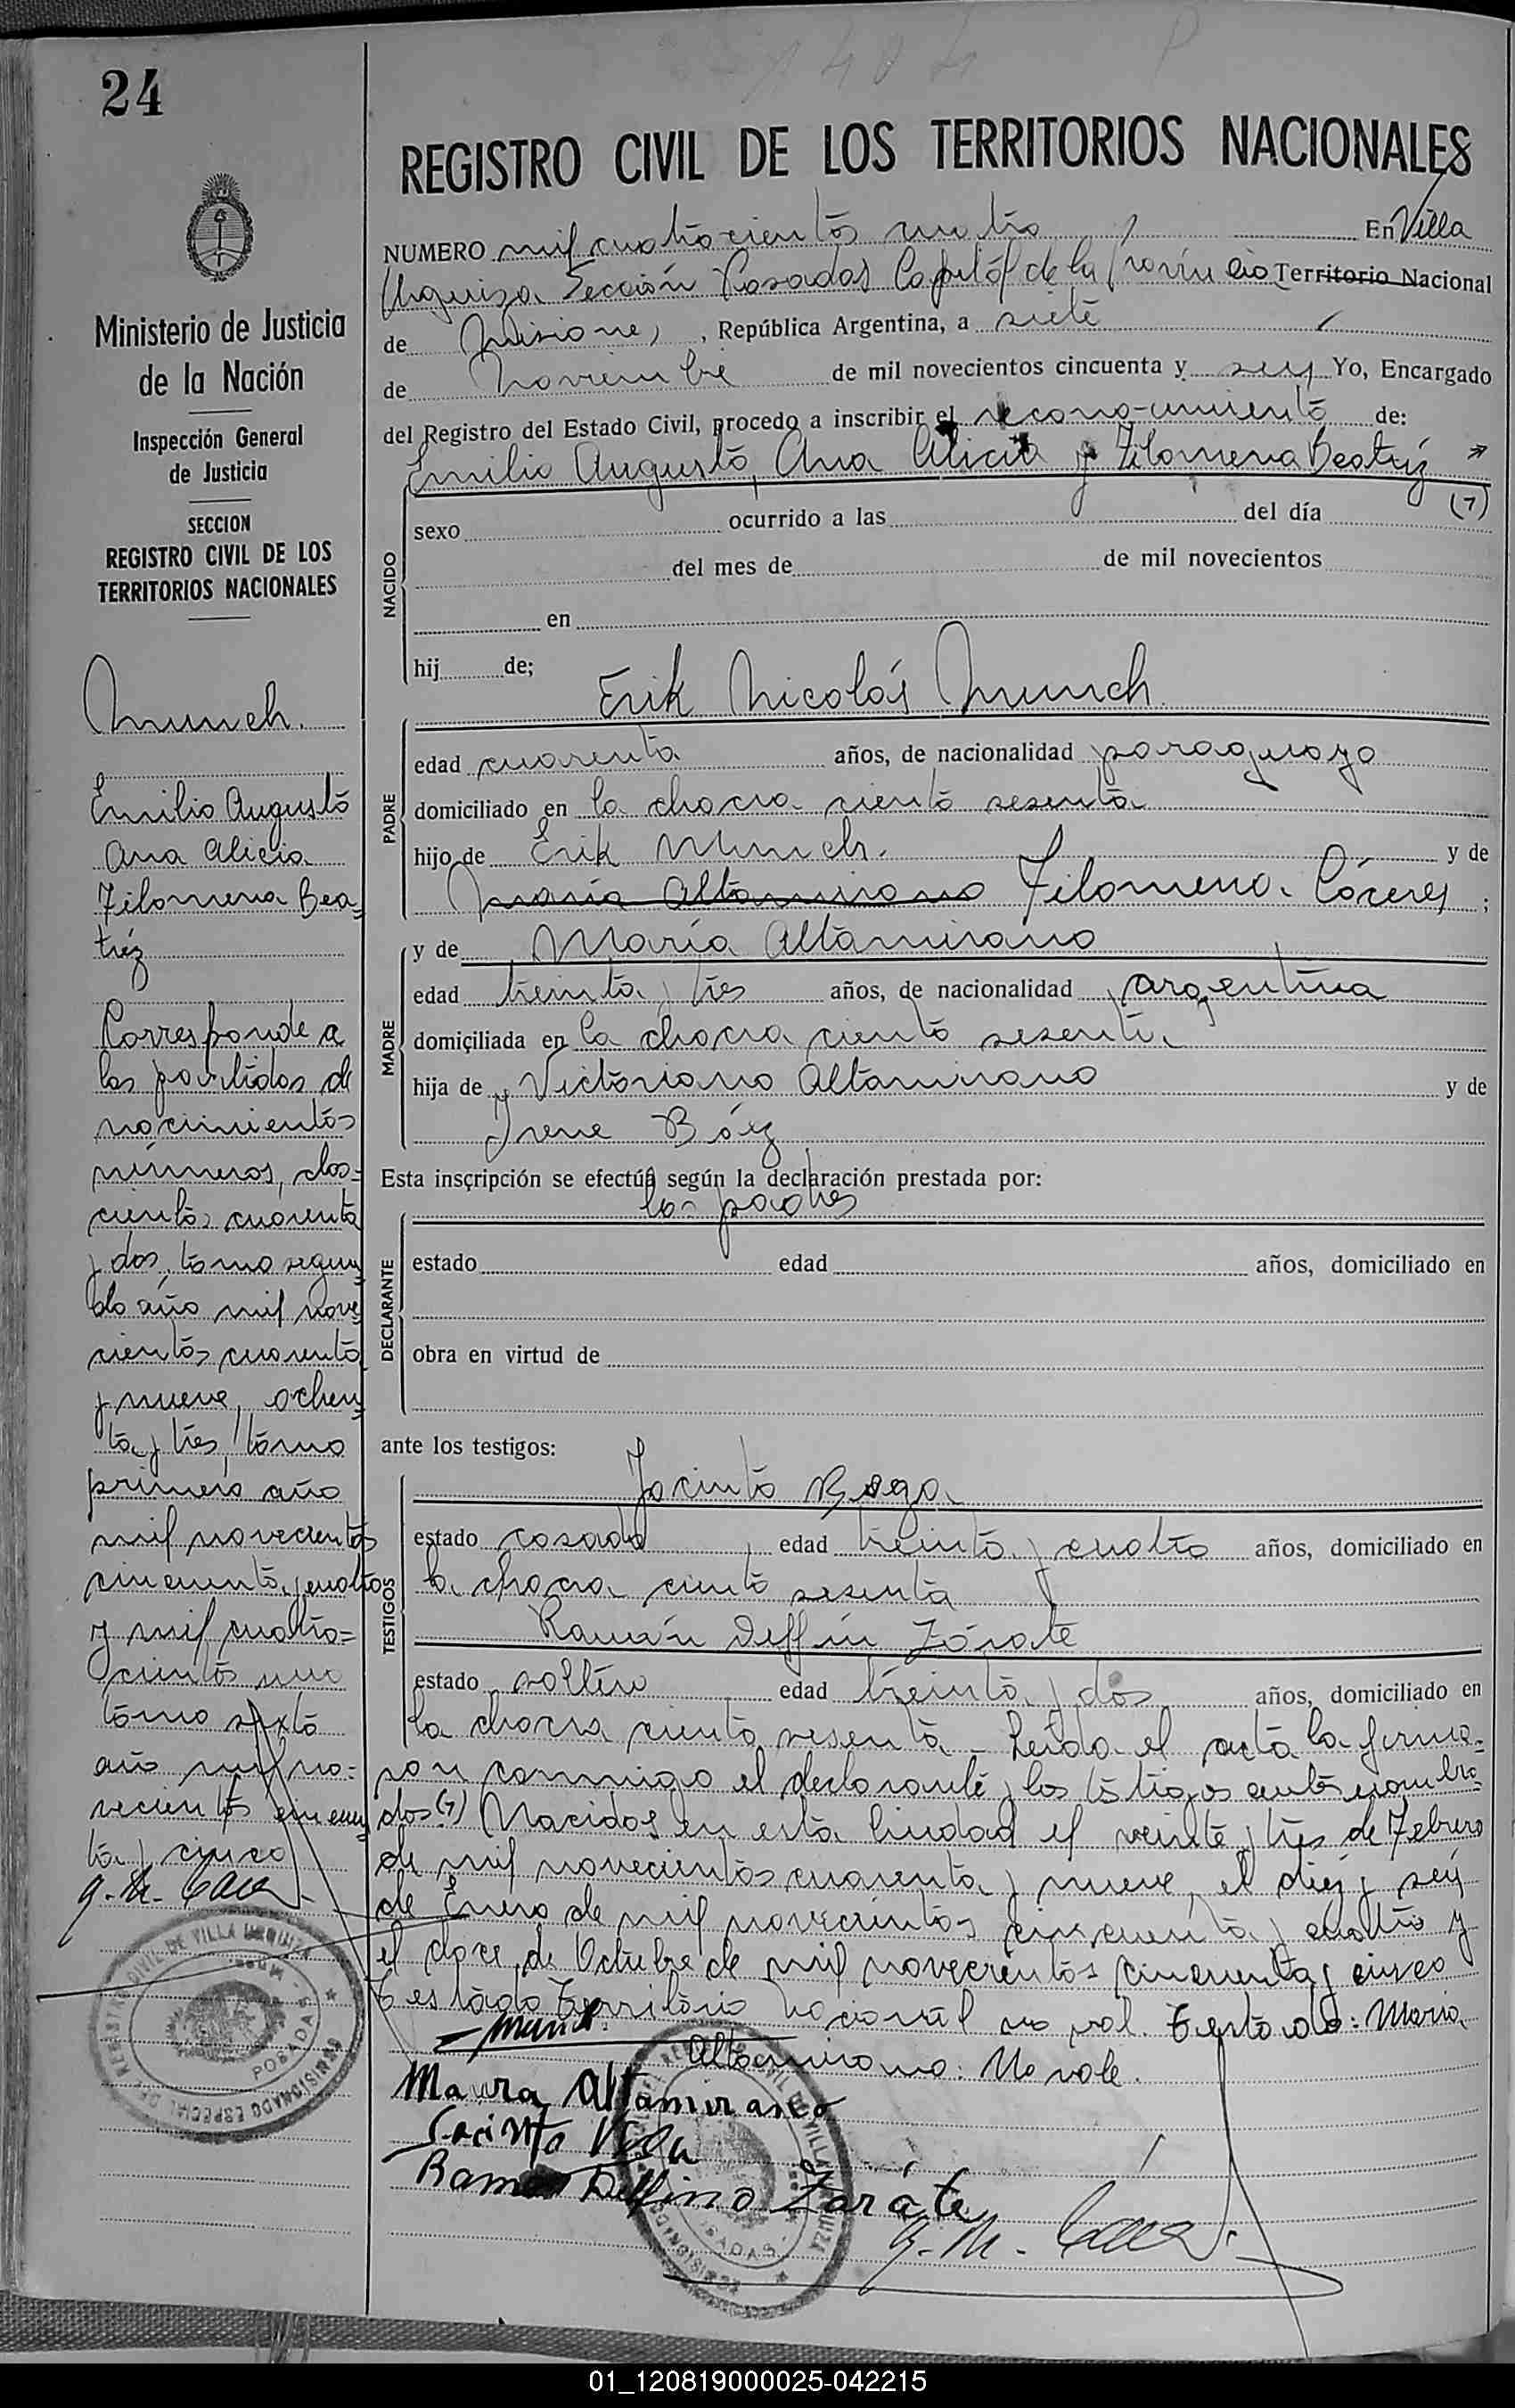 24
Ministerio de Justicia
de la Nación
Inspección General
de Justicia
SECCION
REGISTRO CIVIL DE LOS
TERRITORIOS NACIONALES
Munch.
Emilio Augusto
Ana Alicia
Filomena Bea=
tríz
Corresponde a
las partidas de
nacimientos
números, dos=
cientos cuarenta
y dos, tomo segun
do año mil nove
cientos cuarenta
y nueve, ochen
ta y tres, tomo
primero año
mil novecientos
cincuenta y cuatro
y mil cuatro=
cientos uno
tomo sexto
año mil no=
vecientos cincuen
ta y cinco
REGISTRO CIVIL DE VILLA URQUIZA
POSADAS
COMISIONADO ESPECIAL
1404 P
REGISTRO CIVIL DE LOS TERRITORIOS NACIONALES
NUMERO mil cuatrocientos cuatro En Villa
Urquiza Sección Posadas Capital de la Provincia Territorio Nacional
de Misiones, República Argentina, a siete
de Noviembre de mil novecientos cincuenta y seis Yo, Encargado
del Registro del Estado Civil, procedo a inscribir el reconocimiento de:
Emilio Augusto, Ana Alicia y Filomena Beatríz
NACIDO
sexo ocurrido a las del día (7)
del mes de de mil novecientos
en
hij de; Erik Nicolás Munch
PADRE
edad cuarenta años, de nacionalidad paraguayo
domiciliado en la chacra ciento sesenta
hijo de Erik Munch. y de
María Altamirano Filomena Cáceres;
MADRE
y de María Altamirano
edad treinta y tres años, de nacionalidad argentina
domiciliada en la chacra ciento sesenta
hija de Victoriano Altamirano y de
Irene Báez
Esta inscripción se efectúa según la declaración prestada por:
los padres
DECLARANTE
estado edad años, domiciliado en
obra en virtud de
ante los testigos:
TESTIGOS
Jacinto Vega
estado casado edad treinta y cuatro años, domiciliado en
la chacra ciento sesenta
Ramón Delfín Zárate
estado soltero edad treinta y dos años, domiciliado en
la chacra ciento sesenta - Leída el acta la firma=
ron conmigo el declarante y los testigos antes nombra=
dos (7) Nacidos en esta Ciudad el veinte y tres de Febrero
de mil novecientos cuarenta y nueve, el diez y seis
de Enero de mil novecientos cincuenta y cuatro y
el doce de Octubre de mil novecientos cincuenta y cinco
Testado Territorio Nacional no val. Testado: María
Altamirano: No vale.
Munch.
Maura Altamirano
Jacinto Vega
Ramon Delfino Zaráte
01_120819000025-042215